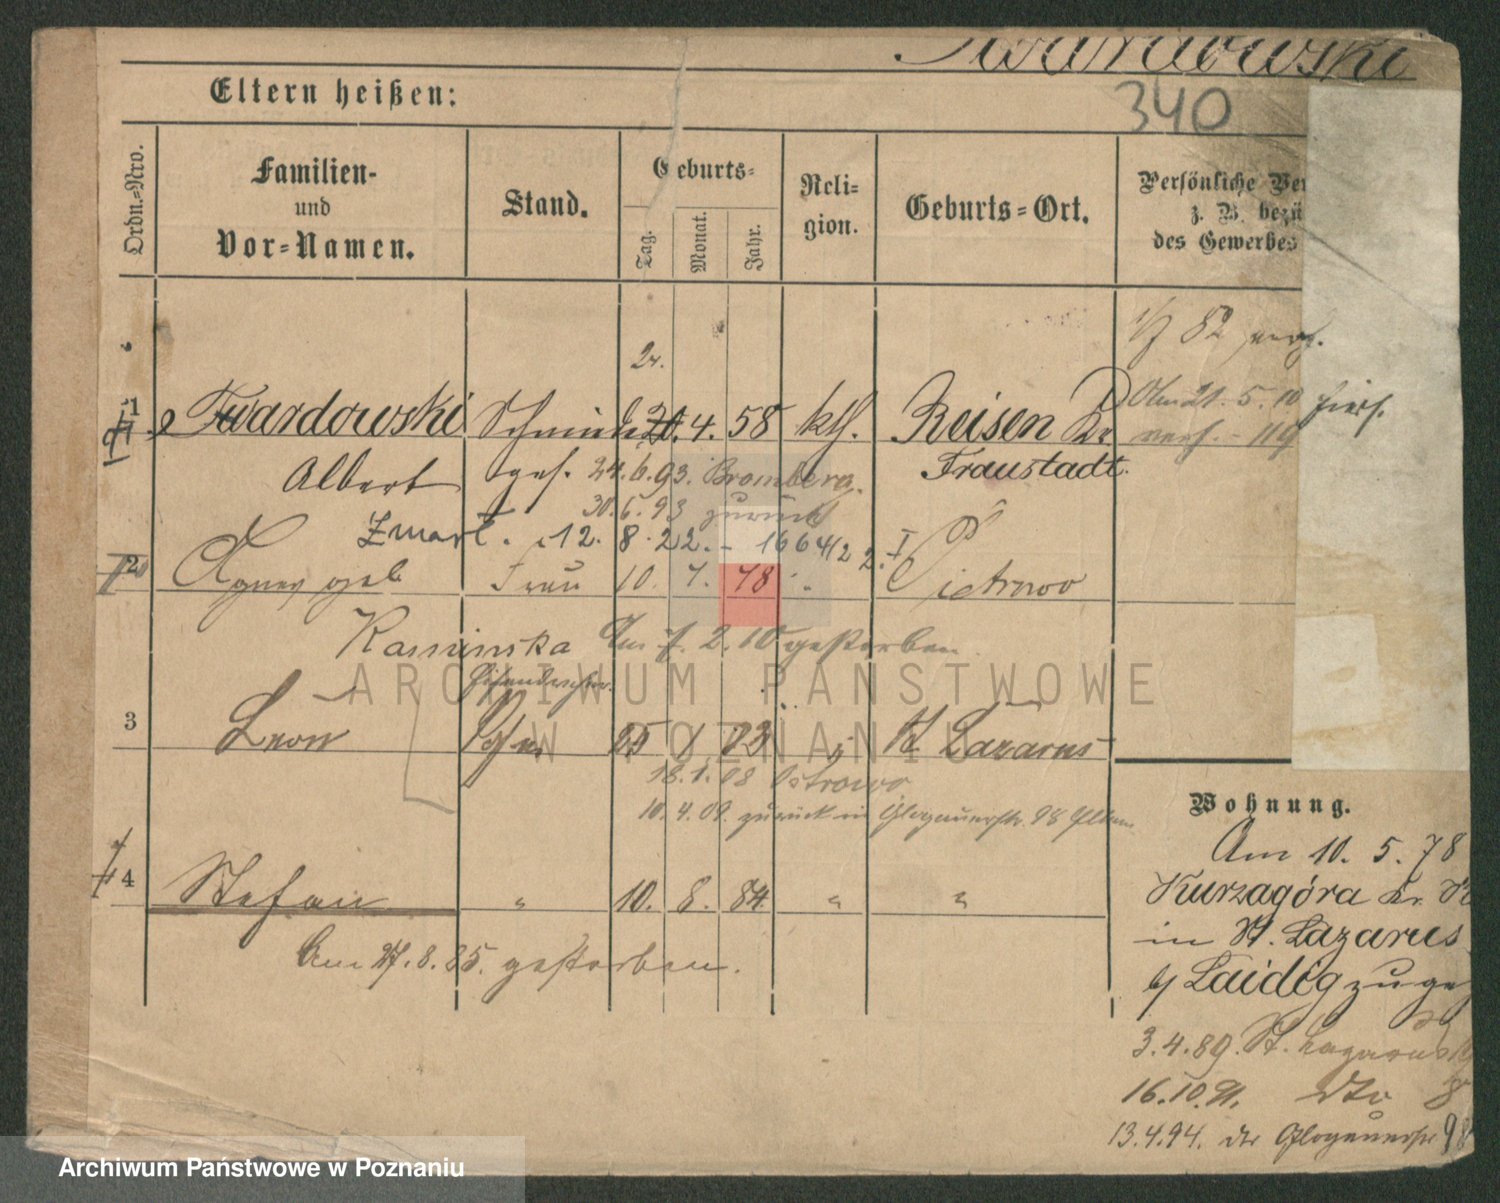 Twardowski
340
Eltern heißen:
Ordn.=Nro.
Familien-
und
Vor=Namen.
Stand.
Geburts=
Tag.
Monat.
Jahr.
Reli=
gion.
Geburts=Ort.
Persönliche Ver
z. B. bezü
des Gewerbes
1/7 82
21. 5. 10
1 Twardowski Schmied 4. 58 kth. Reisen Kr
Albert gef. 24.6.93. Bromberg. Fraustadt.
30.6.93 zurück
Zmarł. 12. 8. 22. - 1664/22. I
2 Agnes geb. Frau 10. 7. 78 " Pietrowo
Kaminska Am 7. 2. 10 gestorben.
3 Leon Sohn 25 1 83 " St. Lazarus
18.1.08 Ostrowo
10.4.09. zurück in Glogauerstr. 98 Eltern
4 Stefan " 10. 8. 84 " "
Am 27.8.85. gestorben.
Wohnung.
Am 10. 5. 78
Kurzagóra Kr. K
in St. Lazarus
b/ Laideg zuge
3.4.89. St. Lazarus
16.10.91. dto 8
13.4.94. dto Glogauerstr 98
ARCHIWUM PAŃSTWOWE
W POZNANIU
Archiwum Państwowe w Poznaniu